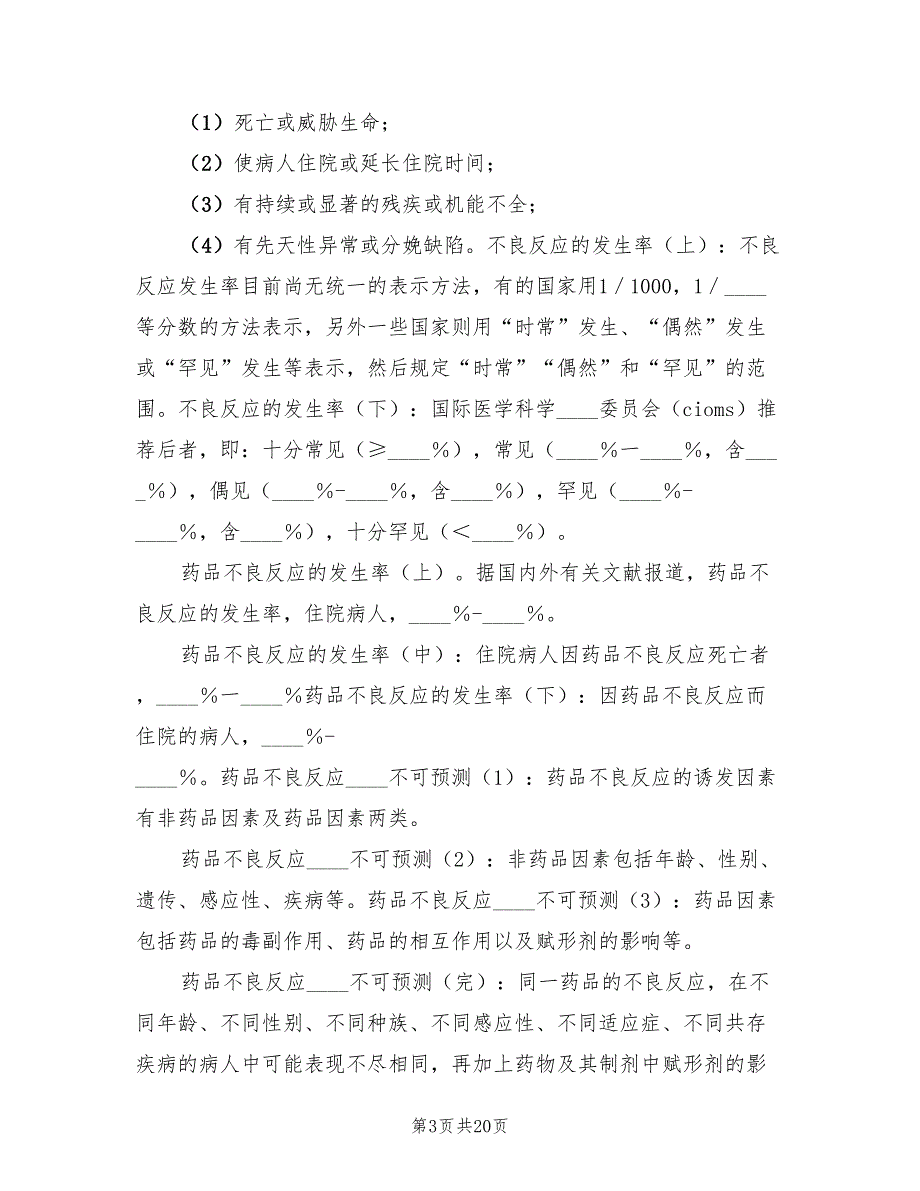 （1）死亡或威胁生命；
（2）使病人住院或延长住院时间；
（3）有持续或显著的残疾或机能不全；
（4）有先天性异常或分娩缺陷。不良反应的发生率（上）：不良
反应发生率目前尚无统一的表示方法，有的国家用1／1000，1／____
等分数的方法表示，另外一些国家则用“时常”发生、“偶然”发生
或“罕见”发生等表示，然后规定“时常”“偶然”和“罕见”的范
围。不良反应的发生率（下）：国际医学科学____委员会（cioms）推
荐后者，即：十分常见（≥____%），常见（____%一____%，含___
_%），偶见（____%-____%，含____%），罕见（____%-
____%，含____%），十分罕见（＜____%）。
药品不良反应的发生率（上）。据国内外有关文献报道，药品不
良反应的发生率，住院病人，____%-____%。
药品不良反应的发生率（中）：住院病人因药品不良反应死亡者
，____%一____%药品不良反应的发生率（下）：因药品不良反应而
住院的病人，____%-
____%。药品不良反应____不可预测（1）：药品不良反应的诱发因素
有非药品因素及药品因素两类。
药品不良反应____不可预测（2）：非药品因素包括年龄、性别、
遗传、感应性、疾病等。药品不良反应____不可预测（3）：药品因素
包括药品的毒副作用、药品的相互作用以及赋形剂的影响等。
药品不良反应____不可预测（完）：同一药品的不良反应，在不
同年龄、不同性别、不同种族、不同感应性、不同适应症、不同共存
疾病的病人中可能表现不尽相同，再加上药物及其制剂中赋形剂的影
第3页共20页